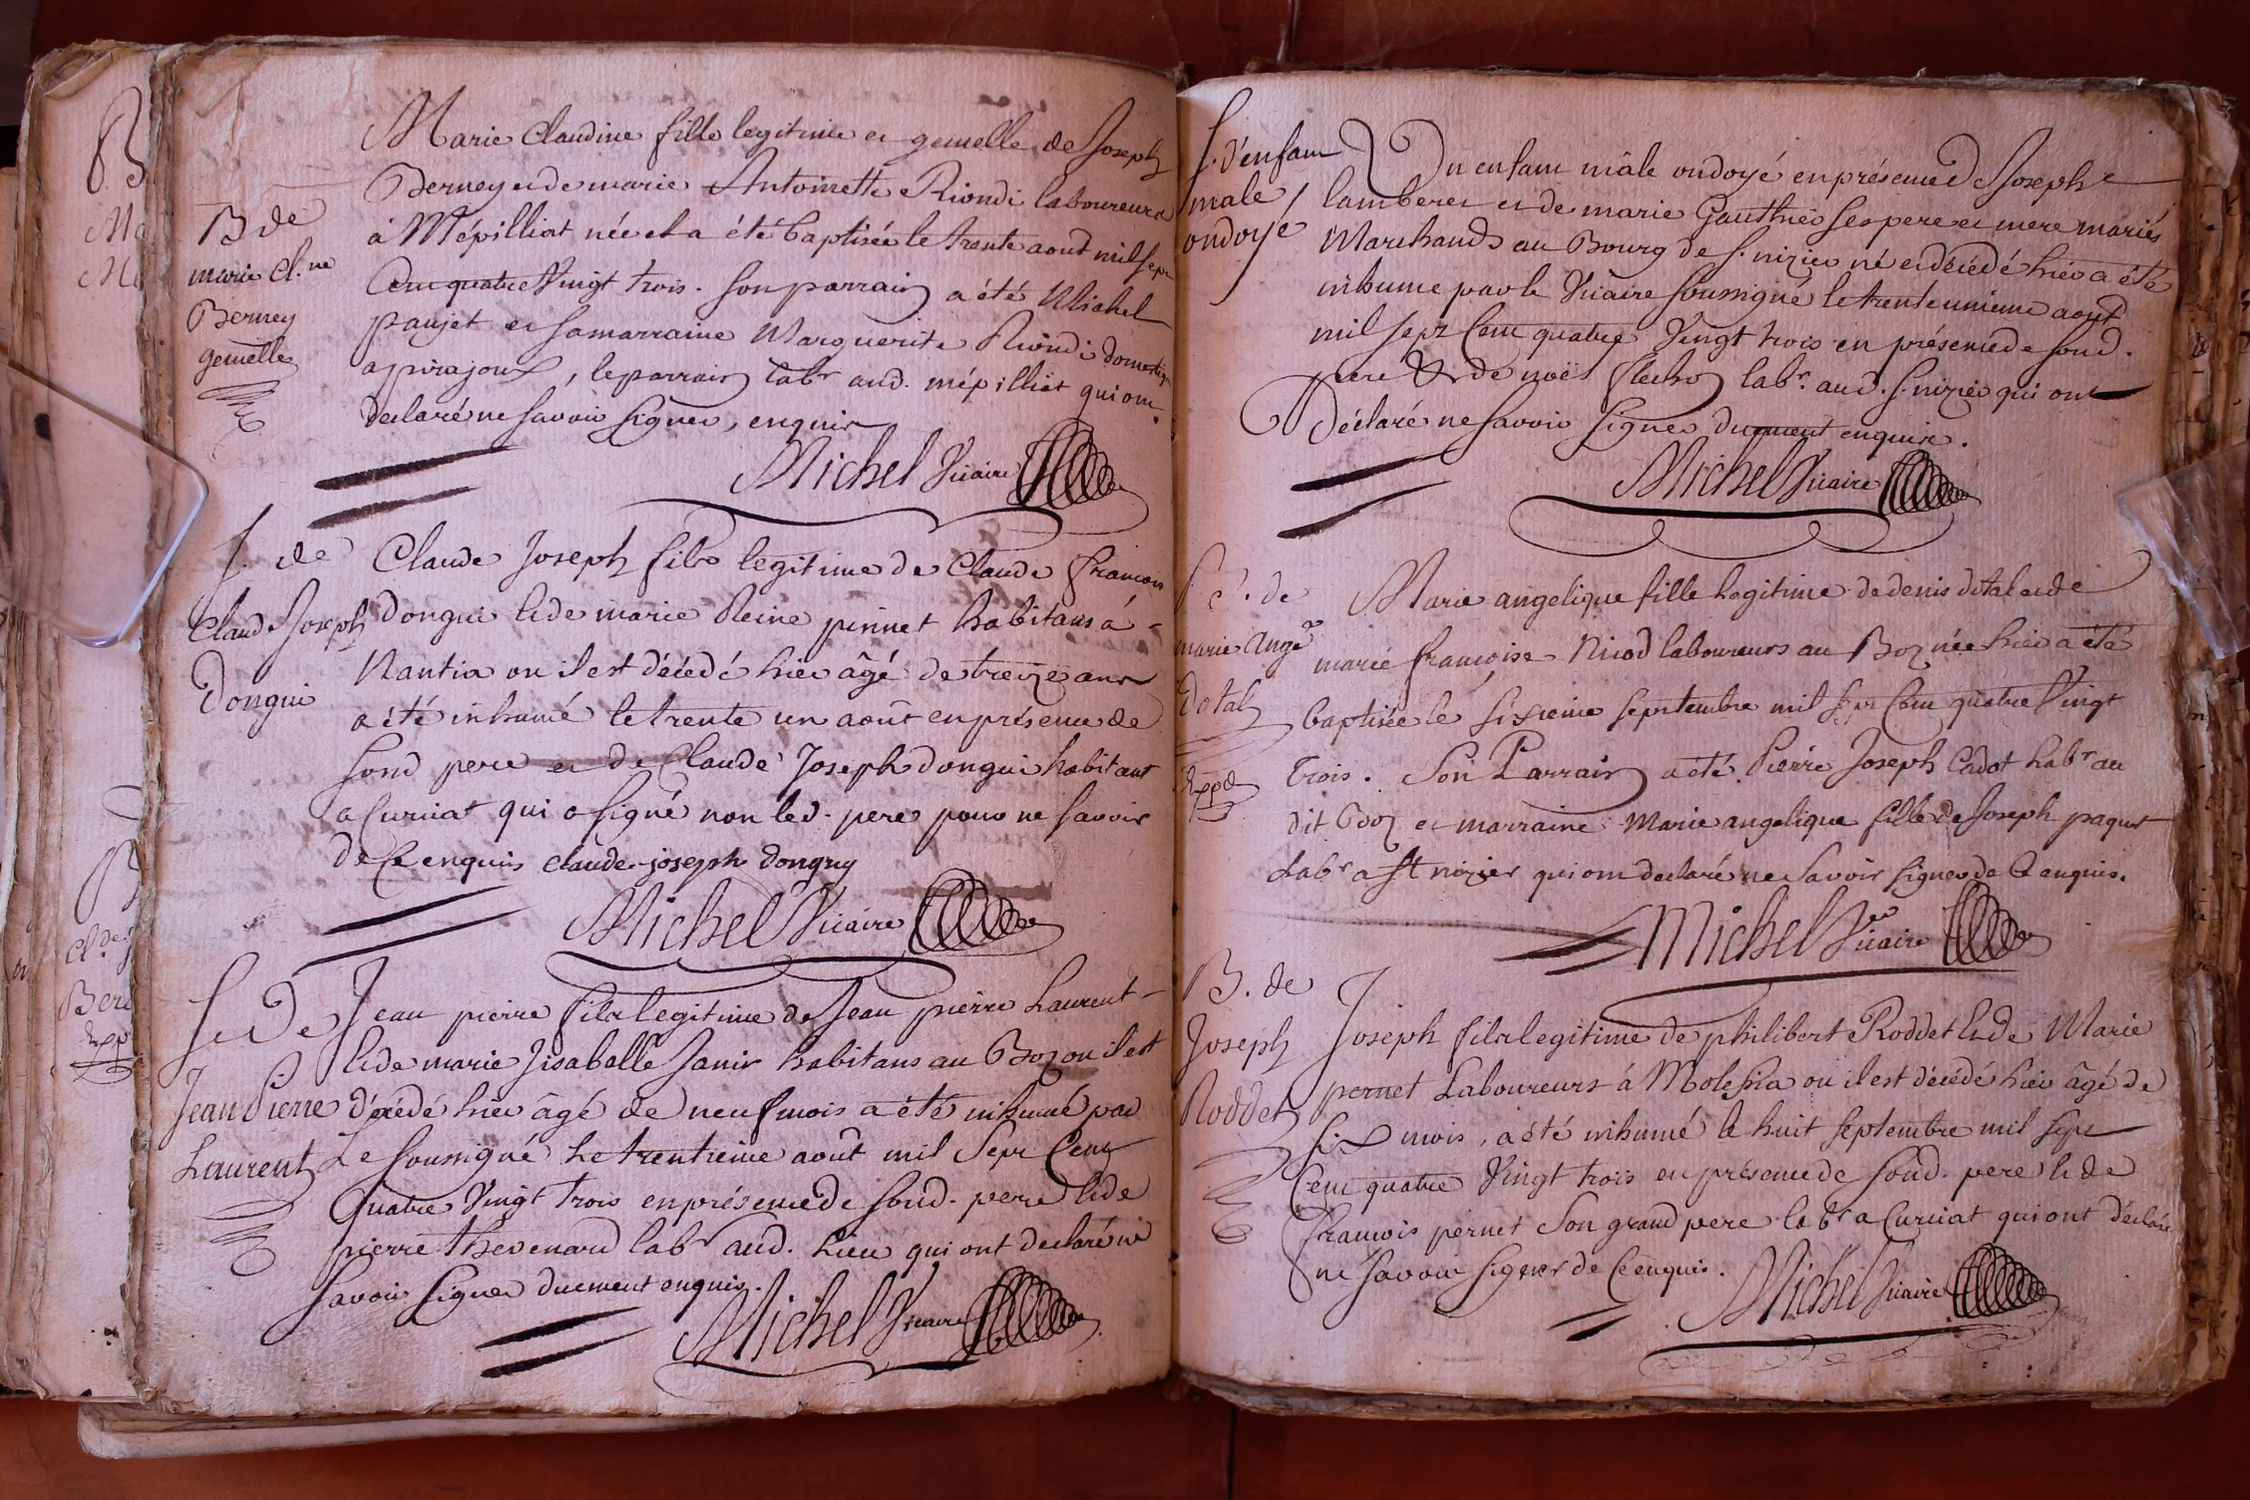 B. de
marie cl.ne
Berney
gemelle
Marie Claudine fille legitime et gemelle de Joseph
Berney et de marie Antoinette Riondi laboureurs
à Mépilliat née et a été baptisée le trente aout mil sept
Cent quatre Vingt trois. Son parrain a été Michel
paujet et sa marraine Marguerite Riondi domestiq
a pirajoux, le parrain labr aud. mépilliat qui ont
declaré ne savoir signer, enquis
Michel Vicaire
S. de
Claude Joseph
Dongui
Claude Joseph fils legitime de Claude françois
Dongui & de marie Reine pinnet habitans à
Nantia ou il est décédé hier âgé de treize ans
a été inhumé le trente un août en présence de
sond pere et de Claude Joseph dongui habitant
a Curciat qui a signé non led. pere pour ne savoir
de ce enquis claude joseph donguy
Michel Vicaire
S. De
Jean Pierre
Laurent
Jean pierre fils legitime de Jean pierre Laurent
& de marie Jisabelle Janin habitans au Boz ou il est
décédé hier âgé de neuf mois a été inhumé par
Le soussigné le trentieme août mil Sept Cent
quatre Vingt trois en présence de sond. pere & de
pierre thevenard labr aud. lieu qui ont declaré ne
savoir signer duement enquis.
Michel Vicaire
S. d'enfant
male
ondoyé
Un enfant mâle ondoyé en présence de Joseph
lamberet et de marie Gauthier ses pere et mere mariés
Marchands au Bourg de s. nizier né et décédé hier a été
inhumé par le Vicaire soussigné le trente unieme aout
mil sept Cent quatre Vingt trois en présence de sond.
pere & de noël labr. aud. s. nizier qui ont
Déclaré ne savoir signer duement enquis.
Michel Vicaire
B. de
marie Ange
Dotal
Exppé
Marie angelique fille Legitime de denis dotal et de
marie françoise Niod laboureurs au Boz née hier a été
baptisée le sixieme septembre mil sept Cent quatre Vingt
trois. Son Parrain a été Pierre Joseph Cadot Labr au
dit Boz et marraine Marie angelique fille de Joseph paquet
Labr a St nizier qui ont declaré ne savoir signer de ce enquis.
Michel Vicaire
B. de
Joseph
Roddet
Joseph fils legitime de philibert Roddet & de Marie
pernet Laboureurs à Molessia ou il est décédé hier âgé de
six mois, a été inhumé le huit septembre mil sept
Cent quatre Vingt trois en présence de sond. pere & de
François pernet son grand pere labr a Curciat qui ont déclaré
ne savoir signer de ce enquis.
Michel Vicaire